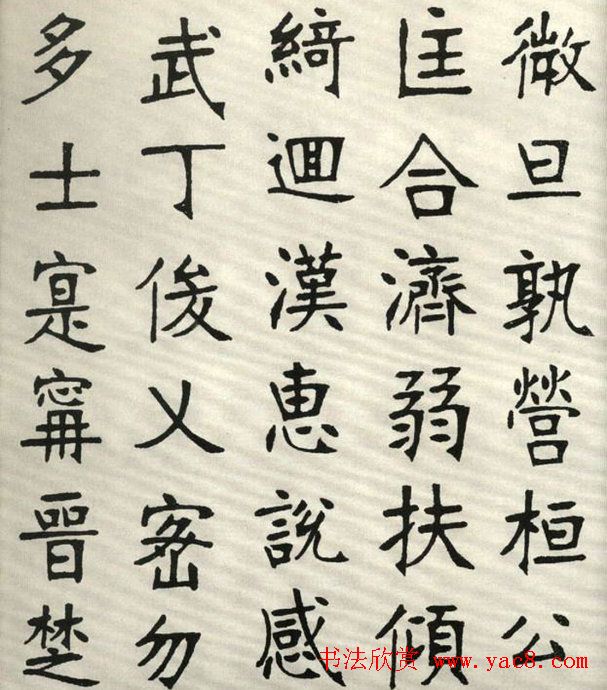 微旦孰營桓公
匡合濟弱扶傾
綺迴漢惠說感
武丁俊乂密勿
多士寔寧晉楚
书法欣赏 www.yac8.com